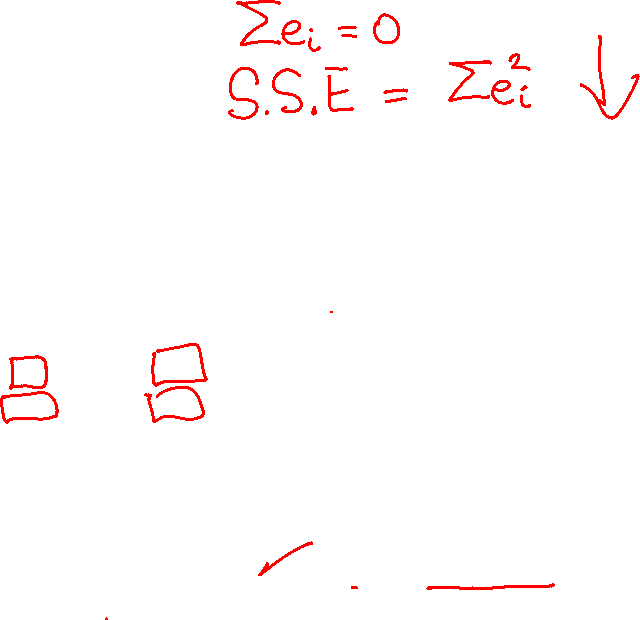 Σei = 0
S.S.E = Σei² ↓